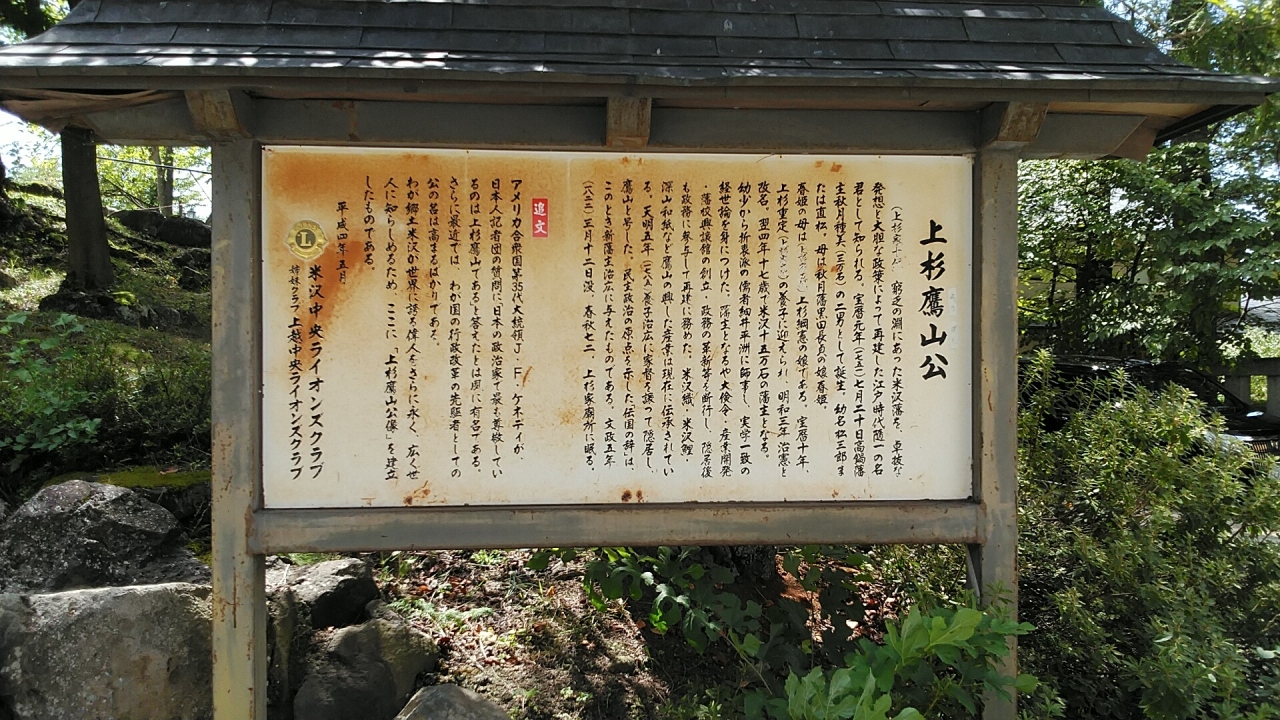 上杉鷹山公
窮乏の淵にあった米沢藩を、卓抜な
発想と大胆な政策によって再建した江戸時代随一の名
君として知られる。宝暦元年 七月二十日高鍋藩
主秋月種美(三万石)の二男として誕生。幼名松三郎ま
たは直松。母は秋月藩黒田長貞の娘春姫。
春姫の母は 上杉綱憲の娘である。宝暦十年、
上杉重定 の養子に迎えられ、明和三年治憲と
改名。翌四年十七歳で米沢十五万石の藩主となる。
幼少から折衷派の儒者細井平洲に師事し、実学一致の
経世論を身につけた。藩主となるや大倹令、産業開発
・藩校興譲館の創立・政務の革新等を断行し、隠居後
も政務に参与して再建に務めた。米沢織・米沢鯉・
深山和紙など鷹山の興した産業は現在に伝承されてい
る。天明五年 養子治広に家督を譲って隠居し、
鷹山と号した。民主政治の原点を示した「伝国の辞」は、
このとき新藩主治広に与えたものである。文政五年
(一八二二)三月十二日没 春秋七二 上杉家廟所に眠る。
追文
アメリカ合衆国第35代大統領J・F・ケネディが、
日本人記者団の質問に「日本の政治家で最も尊敬してい
るのは上杉鷹山である」と答えたとは周に有名である。
さらに最近では、わが国の行政改革の先駆者としての
公の名は高まるばかりである。
わが郷土米沢が世界に誇る偉人をさらに永く、広くせ
人に知らしめるため、ここに、「上杉鷹山公像」を建立
したものである。
平成四年五月
L
米沢中央ライオンズクラブ
姉妹クラブ 上越中央ライオンズクラブ